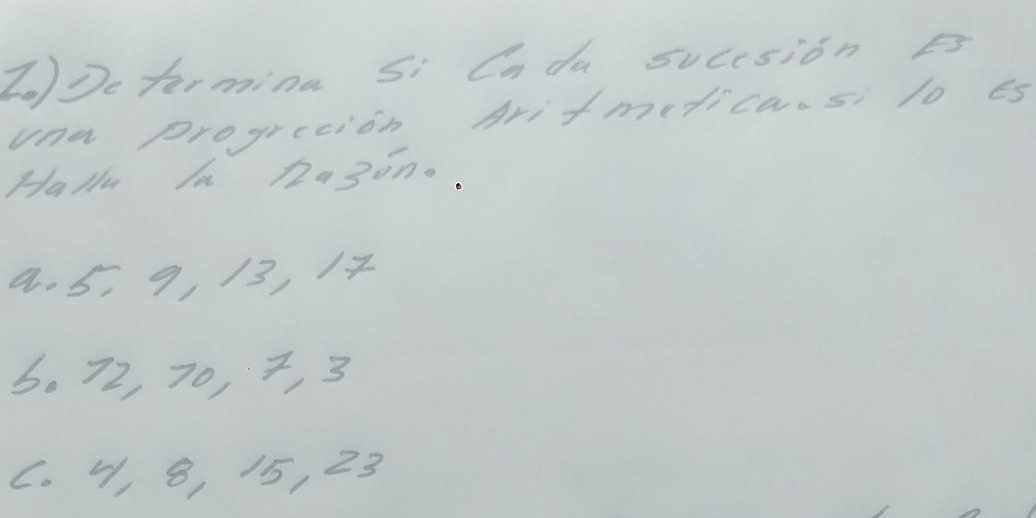 I.) Determina si Cada sucesión Es
una progrección Aritmetica. si lo es
Halla la Razón.
a. 5, 9, 13, 17
b. 12, 10, 7, 3
c. 4, 8, 15, 23